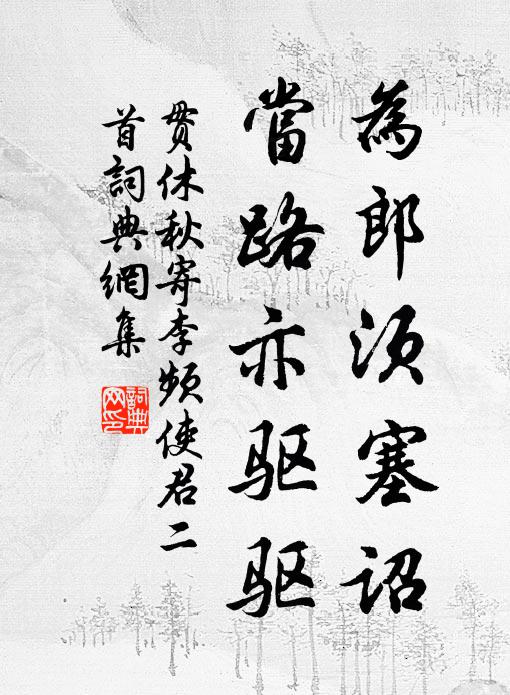 為郎須塞詔
當路亦驱驱
贯休秋寄李频使君二
首詞典網集
詞典网印